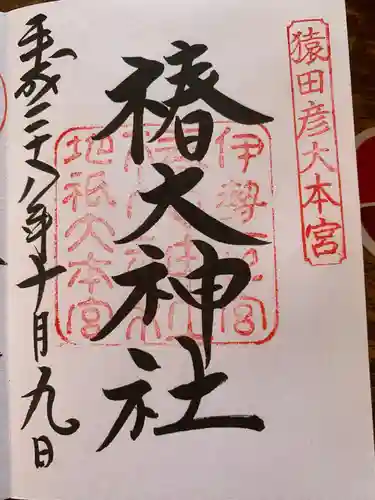 猿田彦大本宮
椿大神社
伊勢一之宮
地祇大本宮
平成二十八年十月九日